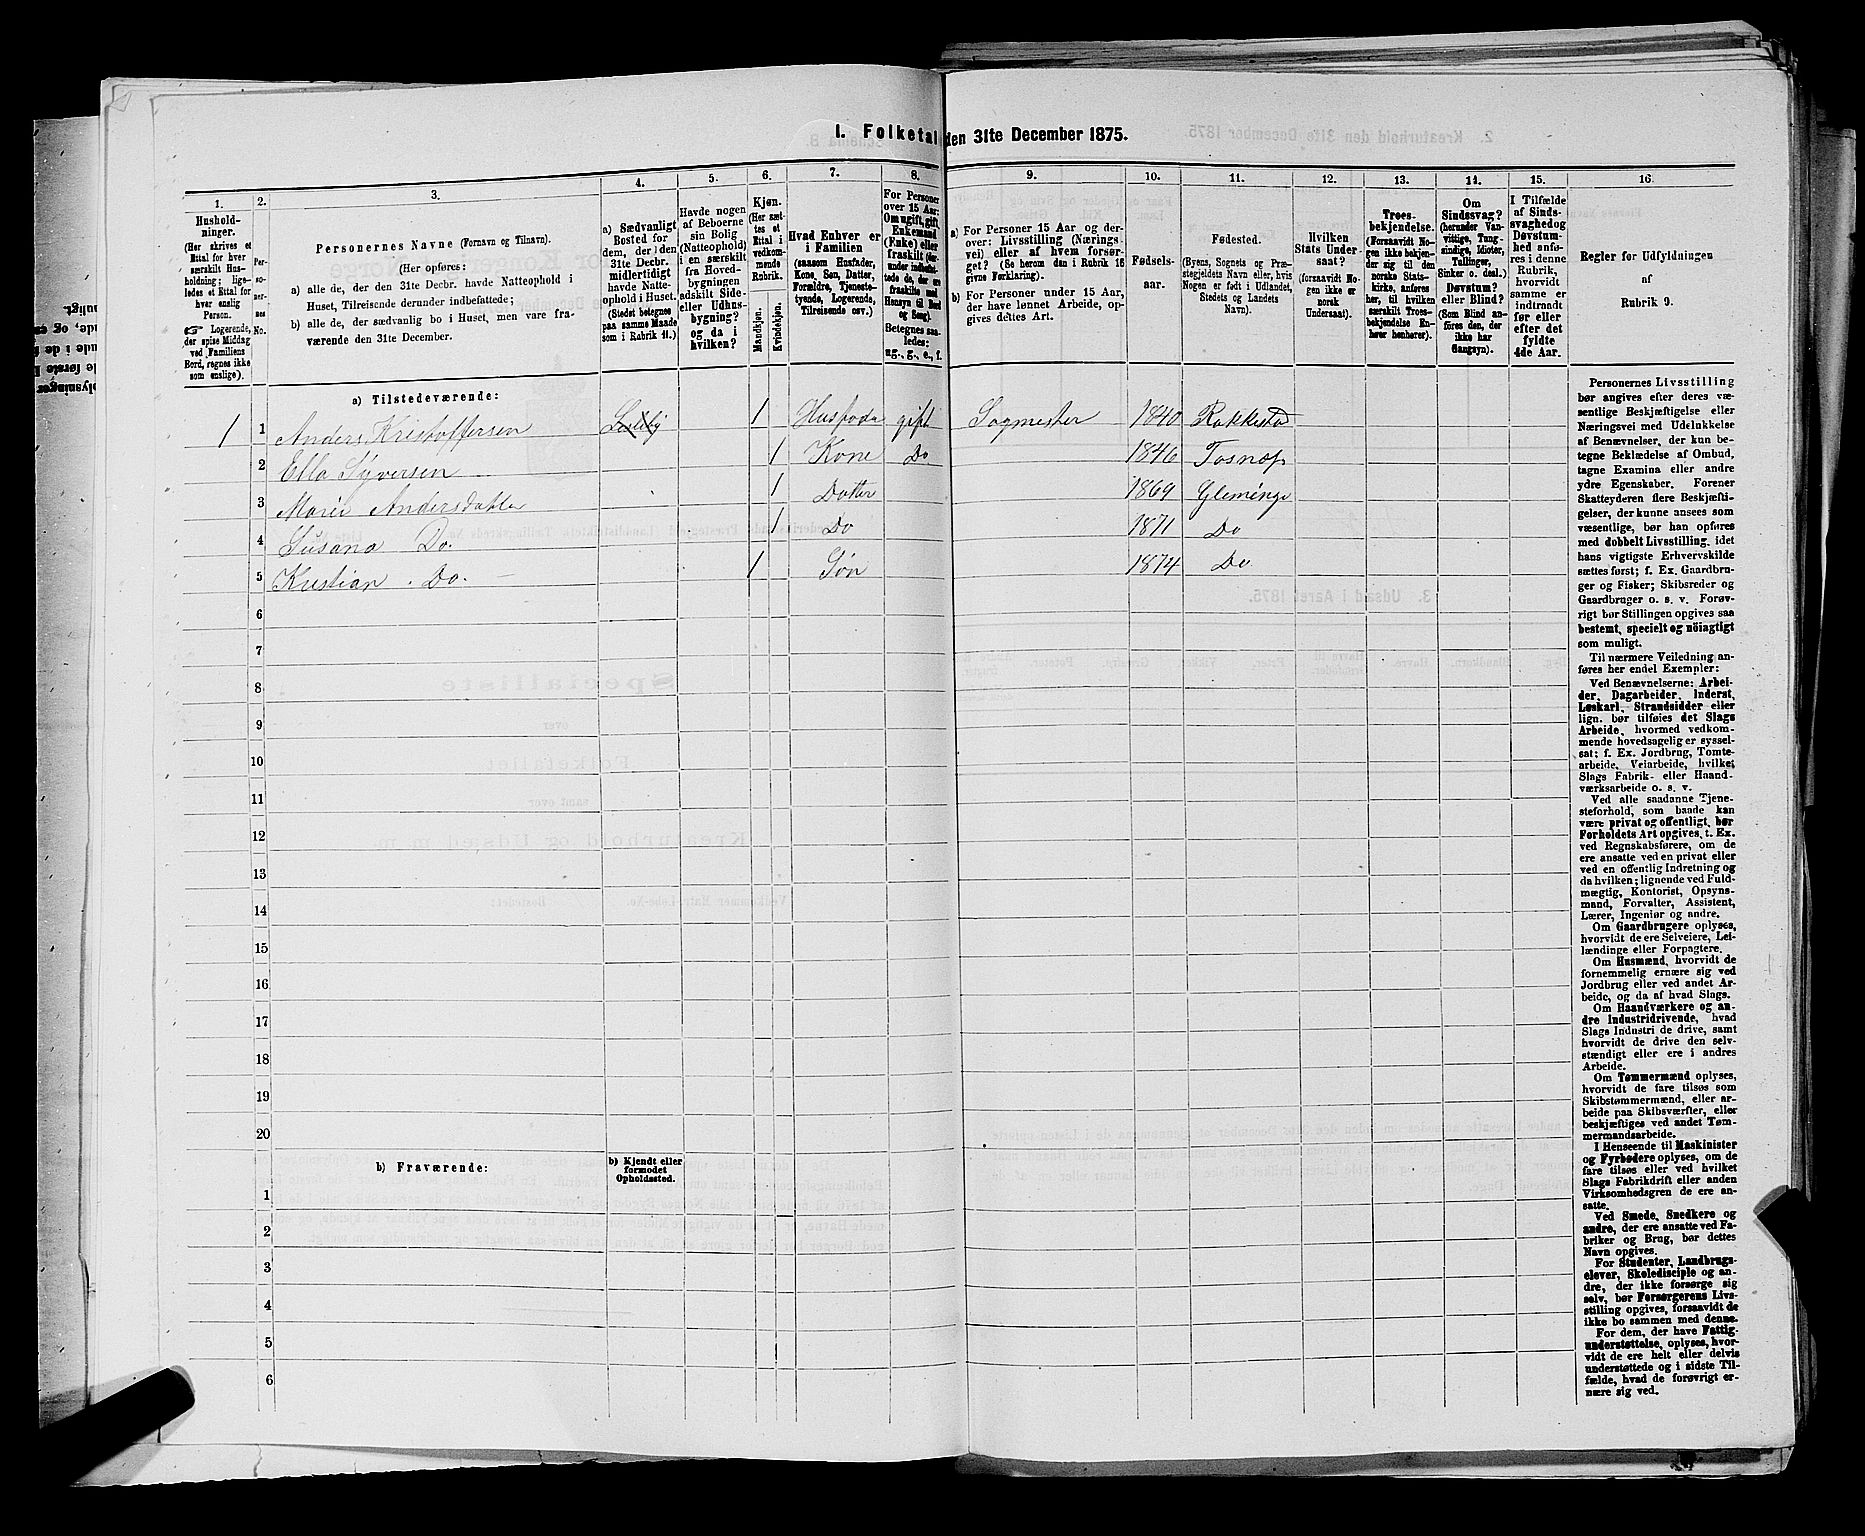 I. Folketal den 31te December 1875.
1. 2. 3. 4. 5. 6. 7. 8. 9. 10. 11. 12. 13. 14. 15. 16.
Hushold-
ninger.
(Her skrives et
Ettal for hver
særskilt Hus-
holdning; lige-
ledes et Ettal for
hver enslig
Person.
☞ Logerende,
der spise Middag
ved Familiens
Bord, regnes ikke
som enslige).
Per-
so-
ner-
nes
No.
Personernes Navne (Fornavn og Tilnavn).
(Her opføres:
a) alle de, der den 31te Decbr. havde Natteophold i
Huset, Tilreisende derunder indbefattede;
b) alle de, der sædvanlig bo i Huset, men vare fra-
værende den 31te December.
a) Sædvanligt
Bosted for
dem, der den
31te Decbr.
midlertidigt
havde Natte-
ophold i Huset.
(Stedet betegnes
paa samme Maade
som i Rubrik 11.)
Havde nogen
af Beboerne
sin Bolig
(Natteophold)
i en særskilt
fra Hoved-
bygningen
adskilt Side-
eller Udhus-
bygning?
og da i
hvilken?
Kjøn.
(Her sæt-
tes et
Ettal i
vedkom-
mende
Rubrik.
Mandkjøn.
Kvindekjøn.
Hvad Enhver er
i Familien
(saasom Husfader,
Kone, Søn, Datter,
Forældre, Tjeneste-
tyende, Logerende,
Tilreisende osv.)
For Personer
over 15 Aar:
Om ugift, gift,
Enkemand
(Enke) eller
fraskilt (der-
under indbefat-
tede de, der ere
fraskilte med
Hensyn til Bord
og Seng).
Betegnes saa-
ledes:
ug., g., e., f.
a) For Personer 15 Aar og der-
over: Livsstilling (Nærings-
vei) eller af hvem forsør-
get? (Se herom den i Rubrik 16
givne Forklaring).
b) For Personer under 15 Aar,
der have lønnet Arbeide, op-
gives dettes Art.
Fødsels-
aar.
Fødested.
(Byens, Sognets og Præ-
stegjeldets Navn eller, hvis
Nogen er født i Udlandet,
Stedets og Landets
Navn).
Hvilken
Stats Under-
saat?
(forsaavidt No-
gen ikke er
norsk
Undersaat).
Troes-
bekjendelse.
(Forsaavidt No-
gen ikke bekjen-
der sig til den
norske Stats-
kirke, anføres
her, til hvilken
særskilt Troes-
bekjendelse En-
hver henhører).
Om
Sindssvag?
(herunder Van-
vittige, Tung-
sindige, Idioter,
Tullinger,
Sinker o. desl.)
Døvstum?
eller Blind?
(Som Blind an-
føres den, der
ikke har
Gangsyn).
I Tilfælde
af Sinds-
svaghed og
Døvstum-
hed anfø-
res i denne
Rubrik,
hvorvidt
samme er
indtraadt
før eller
efter det
fyldte
4de Aar.
Regler for Udfyldningen
af
Rubrik 9.
a) Tilstedeværende:
1 1 Anders Kristoffersen 1 Husfader gift Sagmester 1840 Rakkestad
2 Ella Syversen 1 Kone Do 1846 Tosnæs
3 Marie Andersdatter 1 Datter 1869 Gleminge
4 Susana Do. 1 Do 1871 Do
5 Kristian Do. 1 Søn 1874 Do
6
7
8
9
10
11
12
13
14
15
16
17
18
19
20
b) Fraværende: b) Kjendt eller
formodet
Opholdssted.
1
2
3
4
5
6
Personernes Livsstilling
bør angives efter deres væ-
sentlige Beskjæftigelse eller
Næringsvei med Udelukkelse
af Benævnelser, der kun be-
tegne Beklædelse af Ombud,
tagne Examina eller andre
ydre Egenskaber. Forener
Skatteyderen flere Beskjæfti-
gelser, der kunne ansees som
væsentlige, bør han opføres
med dobbelt Livsstilling, idet
hans vigtigste Erhvervskilde
sættes først; f. Ex. Gaardbru-
ger og Fisker; Skibsreder og
Gaardbruger o. s. v. Forøv-
rigt bør Stillingen opgives saa
bestemt, specielt og nöiagtigt
som muligt.
Til nærmere Veiledning an-
føres her endel Exempler:
Ved Benævnelserne: Arbei-
der, Dagarbeider, Inderst,
Løskarl, Strandsidder eller
lign. bør tilføies det Slags
Arbeide, hvormed vedkom-
mende hovedsagelig er syssel-
sat; f. Ex. Jordbrug, Tomte-
arbeide, Veiarbeide, hvilket
Slags Fabrik- eller Haand-
værksarbeide o. s. v.
Ved alle saadanne Tjene-
steforhold, som baade kan
være privat og offentligt, bør
Forholdets Art opgives, t. Ex.
ved Regnskabsførere, om de
ere ansatte ved en privat eller
ved en offentlig Indretning og
da hvilken; lignende ved Fuld-
mægtig, Kontorist, Opsyns-
mand, Forvalter, Assistent,
Lærer, Ingeniør og andre.
Om Gaardbrugere oplyses,
hvorvidt de ere Selveiere, Lei-
lændinge eller Forpagtere.
Om Husmænd, hvorvidt de
fornemmelig ernære sig ved
Jordbrug eller ved andet Ar-
beide, og da af hvad Slags.
Om Haandværkere og an-
dre Industridrivende, hvad
Slags Industri de drive, samt
hvorvidt de drive den selv-
stændigt eller ere i andres
Arbeide.
Om Tømmermænd oplyses,
hvorvidt de fare tilsøs som
Skibstømmermænd, eller ar-
beide paa Skibsværfter, eller
beskjæftiges ved andet Tøm-
mermandsarbeide.
I Henseende til Maskinister
og Fyrbødere oplyses, om de
fare tilsøs eller ved hvilket
Slags Fabrikdrift eller anden
Virksomhedsgren de ere an-
satte.
Ved Smede, Snedkere og
andre, der ere ansatte ved Fa-
briker og Brug, bør dettes
Navn opgives.
For Studenter, Landbrugs-
elever, Skoledisciple og an-
dre, der ikke forsørge sig
selv, bør Forsørgerens Livs-
stilling opgives, forsaavidt de
ikke bo sammen med denne.
For dem, der have Fattig-
understøttelse, oplyses, hvor-
vidt de ere helt eller delvis
understøttede og i sidste Til-
fælde, hvad de forøvrigt er-
nære sig ved.